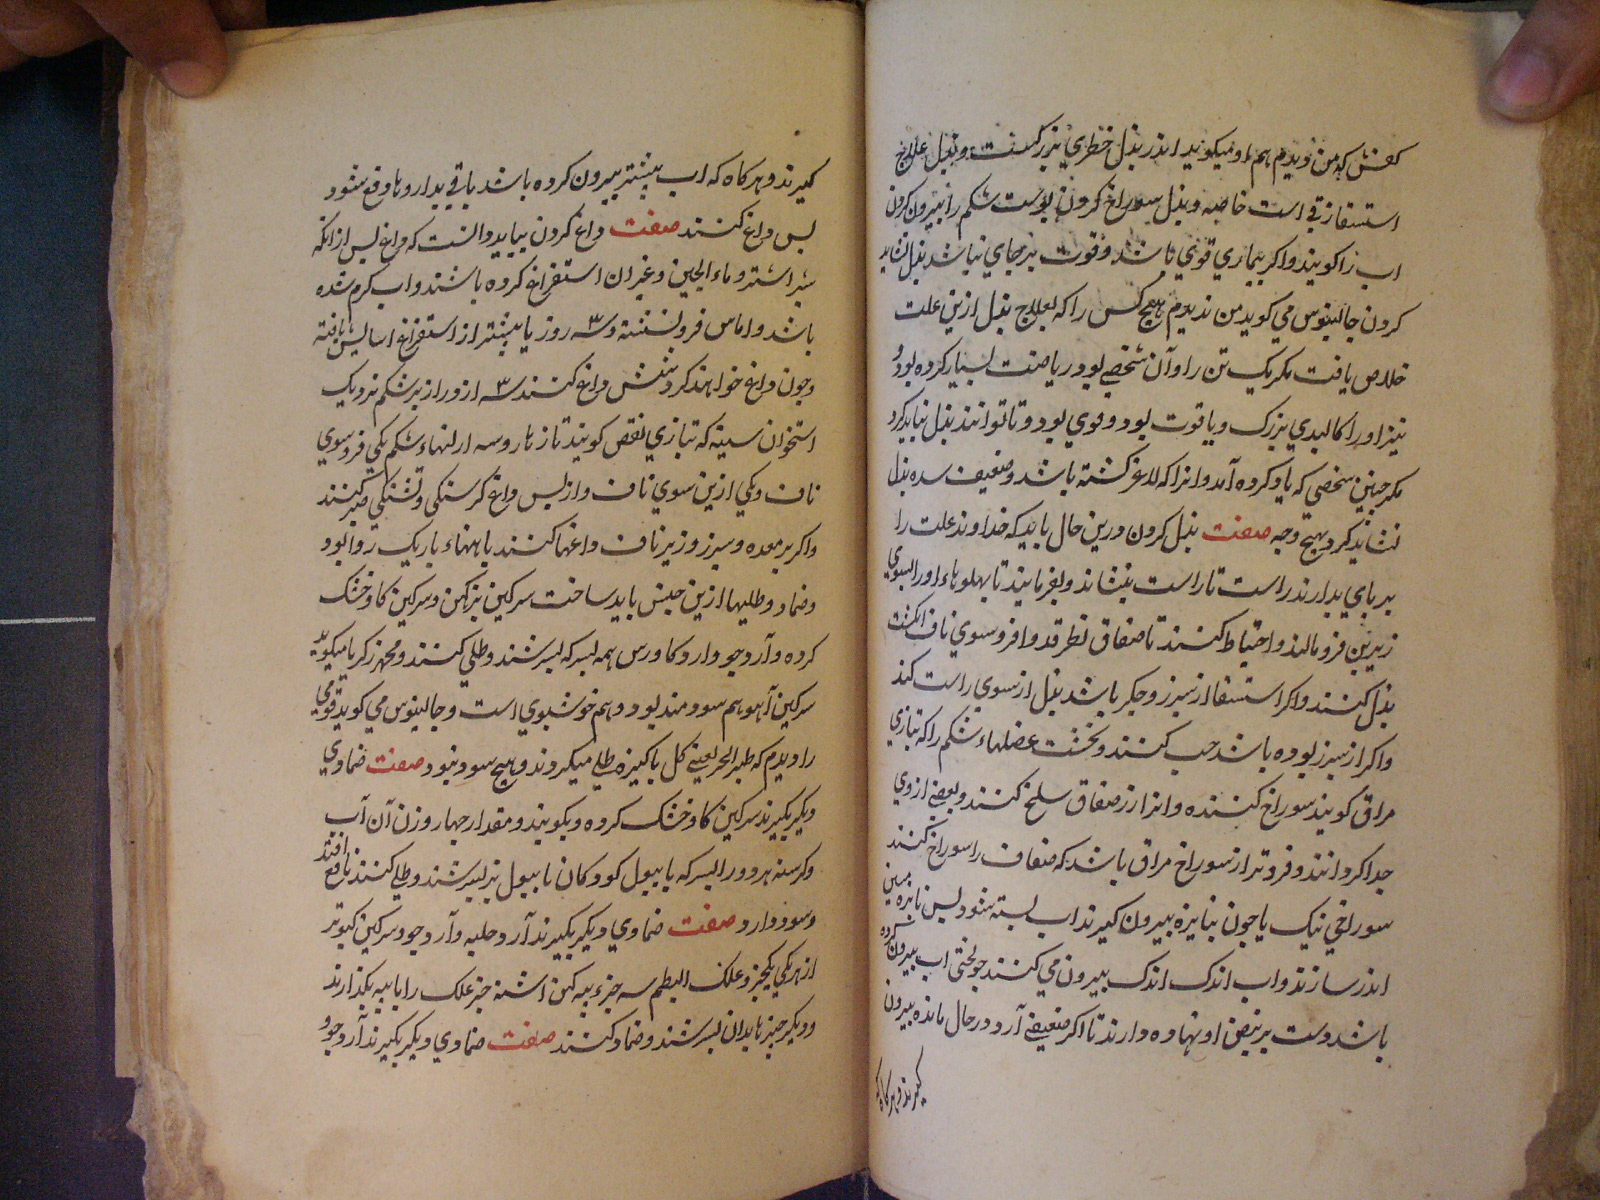 کفتش که من ندیدم هم او میکوید اندر بذل خطری بزرکست و بذل علاج
استسقاء زقی است خاصه و بذل سوراخ کردن پوست شکم را و بیرون کردن
اب را کویند و اکر بیماری قوی باشد و قوت بر جای نباشد بذل نشاید
کردن جالینوس می کوید من ندیدم هیچ کس را که بعلاج بذل ازین علت
خلاص یافت مکر یک تن را و آن شخصی بود ریاضت بسیار کرده بود و
نیز او را کالبدی بزرک و با قوت بود و قوی بود و تا توانند بذل نباید کرد
مکر چنین شخصی که یاد کرده آمد و انرا که لاغر کشته باشد و ضعیف شده بذل
نشاید کرد بهیچ وجه صفت بذل کردن درین حال باید که خداوند علت را
بر پای بدارند راست تا راست بنشاند و بفرمایند تا پهلوهاء او را بسوی
زیرین فرو مالند و احتیاط کنند تا صفاق نطرقد و افروسوی ناف انکشت
بذل کنند و اکر استسقا از سبرز و جکر باشد بذل از سوی راست کنند
و اکر از سبرز بوده باشد چپ کنند و نخست عضلهاء شکم را که بتازی
مراق کویند سوراخ کننده و انرا از صفاق سلخ کنند و بعضی ازوی
جدا کردانند و فروتر از سوراخ مراق باشد که صفاق را سوراخ کنند
سوراخی نیک یا چون بنایزه بیرون کیرند اب بسته شود پس نایزه مسین
اندر سازند و اب اندک اندک بیرون می کنند چو لختی اب بیرون کرده
باشد دست بر نبض او نهاده دارند تا اکر ضعیفی آرد در حال مانده بیرون
کیرند و هرکاه که
کیرند و هرکاه که اب بیشتر بیرون کرده باشد باقی بداروها دفع شود
پس داغ کنند صفت داغ کردن بباید دانست که داغ پس از انکه
شیر اشتر و ماء الجبن و غیر ان استفراغ کرده باشند و اب کرم شده
باشد و اماس فرو نشسته و سه ۳ روز یا بیشتر از استفراغ اسایش یافته
و چون داغ خواهند کرد شش داغ کنند سه ۳ از دراز بر شکم نزدیک
استخوان سینه که بتازی لقص کویند تا زهار و سه از پهناء شکم یکی فروسوی
ناف و یکی ازین سوی ناف و از پس داغ کرسنکی و تشنکی صبر کنند
و اکر بر معده و سبرز و زیر ناف داغها کنند با پهناء باریک روا بود
و ضماد و طلیها ازین جنس باید ساخت سرکین بز کهن و سرکین کاو خشک
کرده و آرد جو و ارد کاورس همه بسرکه بسرشند و طلی کنند و محمد زکریا میکوید
سرکین آهو هم سودمند بود و هم خوشبوی است و جالینوس می کوید قومی
را دیدم که طیر الحر یعنی کل پاکیزه طلی میکردند و هیچ سود نبود صفت ضمادی
دیکر بکیرند سرکین کاو خشک کرده و بکویند و مقدار چهار وزن آن آب
و کرسنه هر دو را بسرکه یا ببول کودکان یا ببول بز بسرشند و طلی کنند نافع افتد
و سود دارد صفت ضمادی دیکر بکیرند آرد حلبه و آرد جو و سرکین کبوتر
از هر یکی یکجزو علک البطم سه جزء پیه کهن اشنه جز علک را با پیه بکدازند
و دیکر چیزها بدان بسرشند و ضماد کنند صفت ضمادی دیکر بکیرند آرد جو و